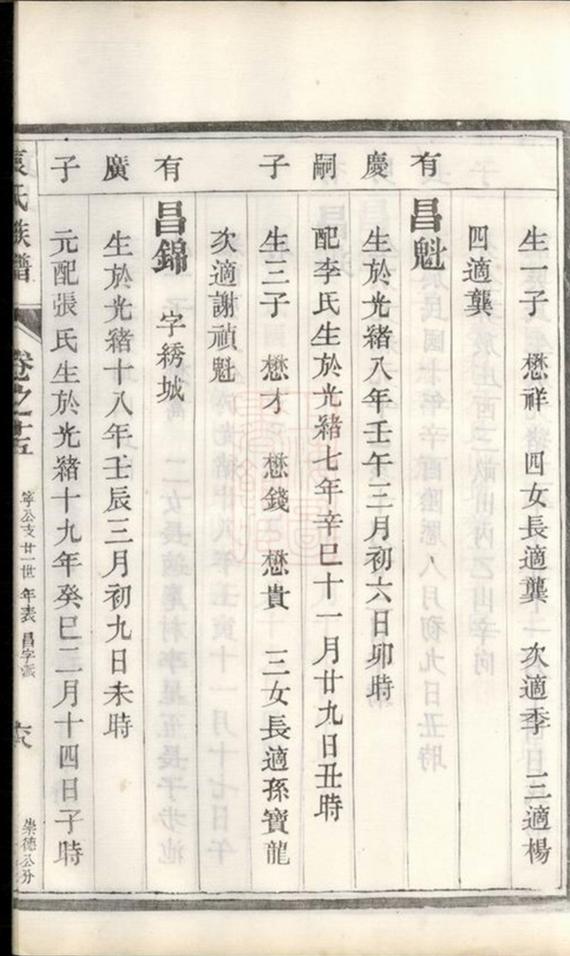 生一子 懋祥 四女長適龔 次適季 三適楊
四適龔
有慶嗣子有廣子
昌魁
生於光緒八年壬午三月初六日卯時
配李氏生於光緒七年辛巳十一月廿九日丑時
生三子 懋才 懋錢 懋貴 三女長適孫寶龍
次適謝禎魁
昌錦 字綉城
生於光緒十八年壬辰三月初九日未時
元配張氏生於光緒十九年癸巳二月十四日子時
氏族譜 卷之十五 寧公支廿一世年表昌字派 崇德公分